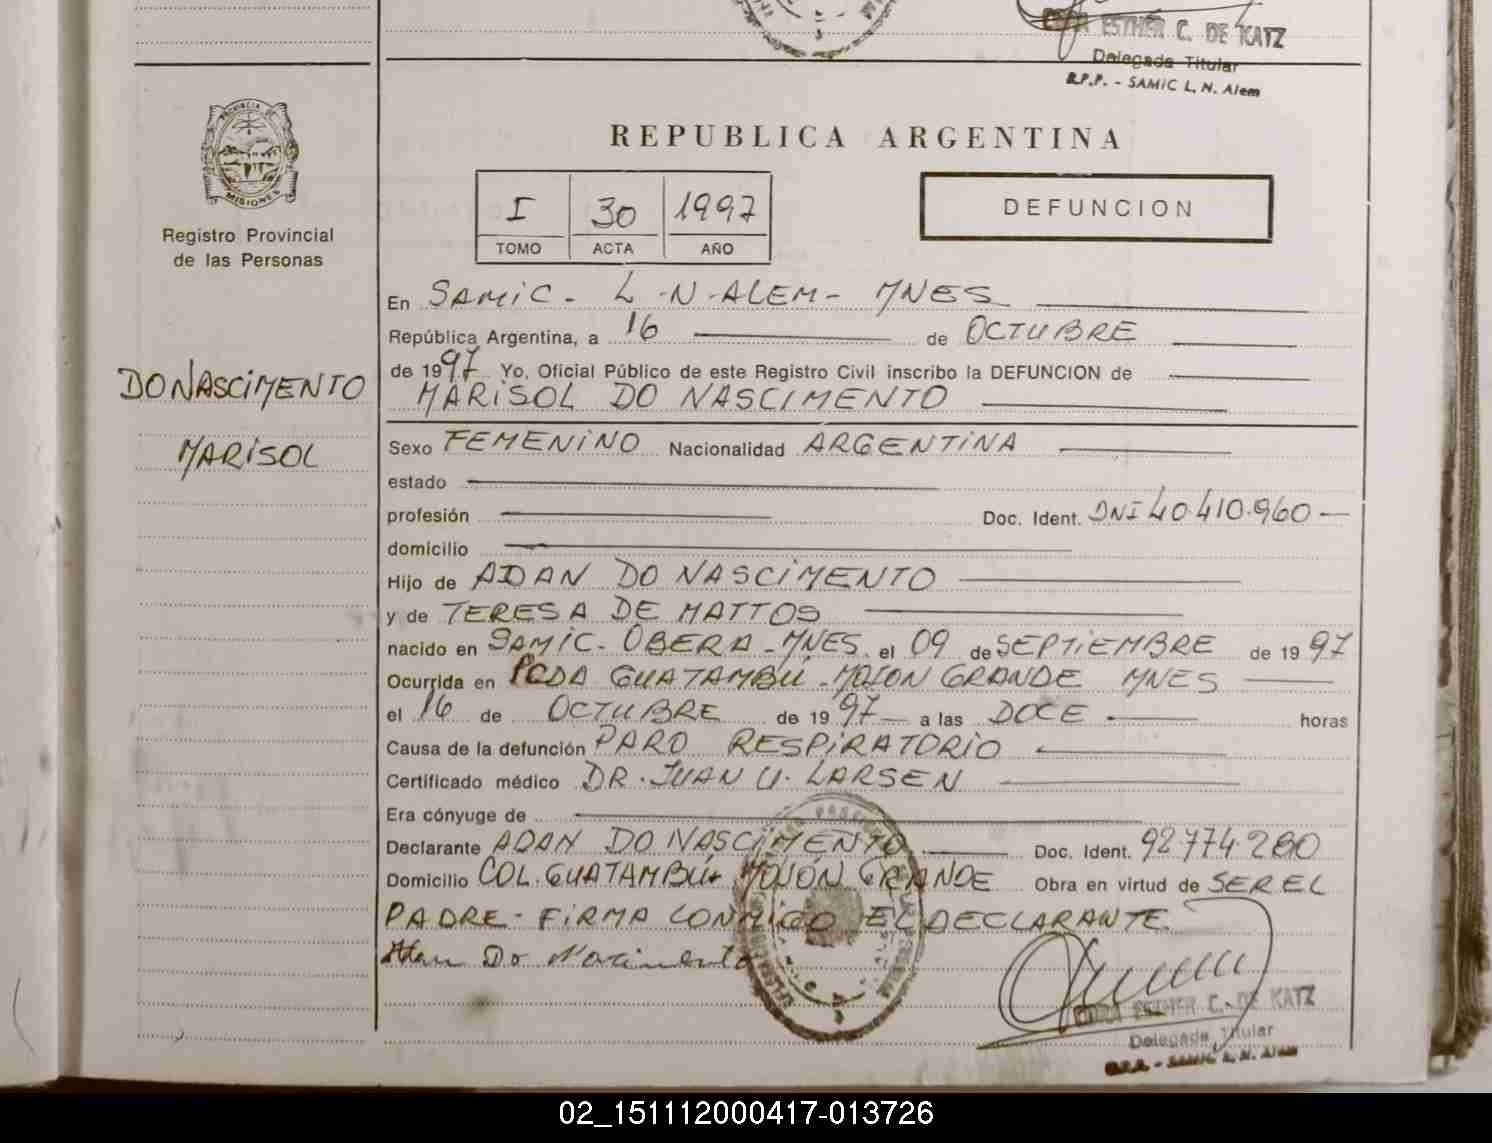 CORA ESTHER C. DE KATZ
Delegada Titular
R.P.P. - SAMIC L. N. Alem
PROVINCIA DE
MISIONES
Registro Provincial
de las Personas
DO NASCIMENTO
MARISOL
REPUBLICA ARGENTINA
I 30 1997
TOMO ACTA AÑO
DEFUNCION
En SAMIC - L - N - ALEM - MNES
República Argentina, a 16 de OCTUBRE
de 1997 Yo, Oficial Público de este Registro Civil inscribo la DEFUNCION de
MARISOL DO NASCIMENTO
Sexo FEMENINO Nacionalidad ARGENTINA
estado
profesión Doc. Ident. DNI 40.410.960
domicilio
Hijo de ADAN DO NASCIMENTO
y de TERESA DE MATTOS
nacido en SAMIC - OBERA - MNES. el 09 de SEPTIEMBRE de 1997
Ocurrida en PCDA GUATAMBÚ - MOJON GRANDE MNES
el 16 de OCTUBRE de 1997 a las DOCE horas
Causa de la defunción PARO RESPIRATORIO
Certificado médico DR. JUAN U. LARSEN
Era cónyuge de
Declarante ADAN DO NASCIMENTO Doc. Ident. 92.774.280
Domicilio COL. GUATAMBÚ - MOJÓN GRANDE Obra en virtud de SER EL
PADRE - FIRMA CONMIGO EL DECLARANTE.
Adan Do Nacimento
CORA ESTHER C. DE KATZ
Delegada Titular
R.P.P. - SAMIC L. N. Alem
02_151112000417-013726